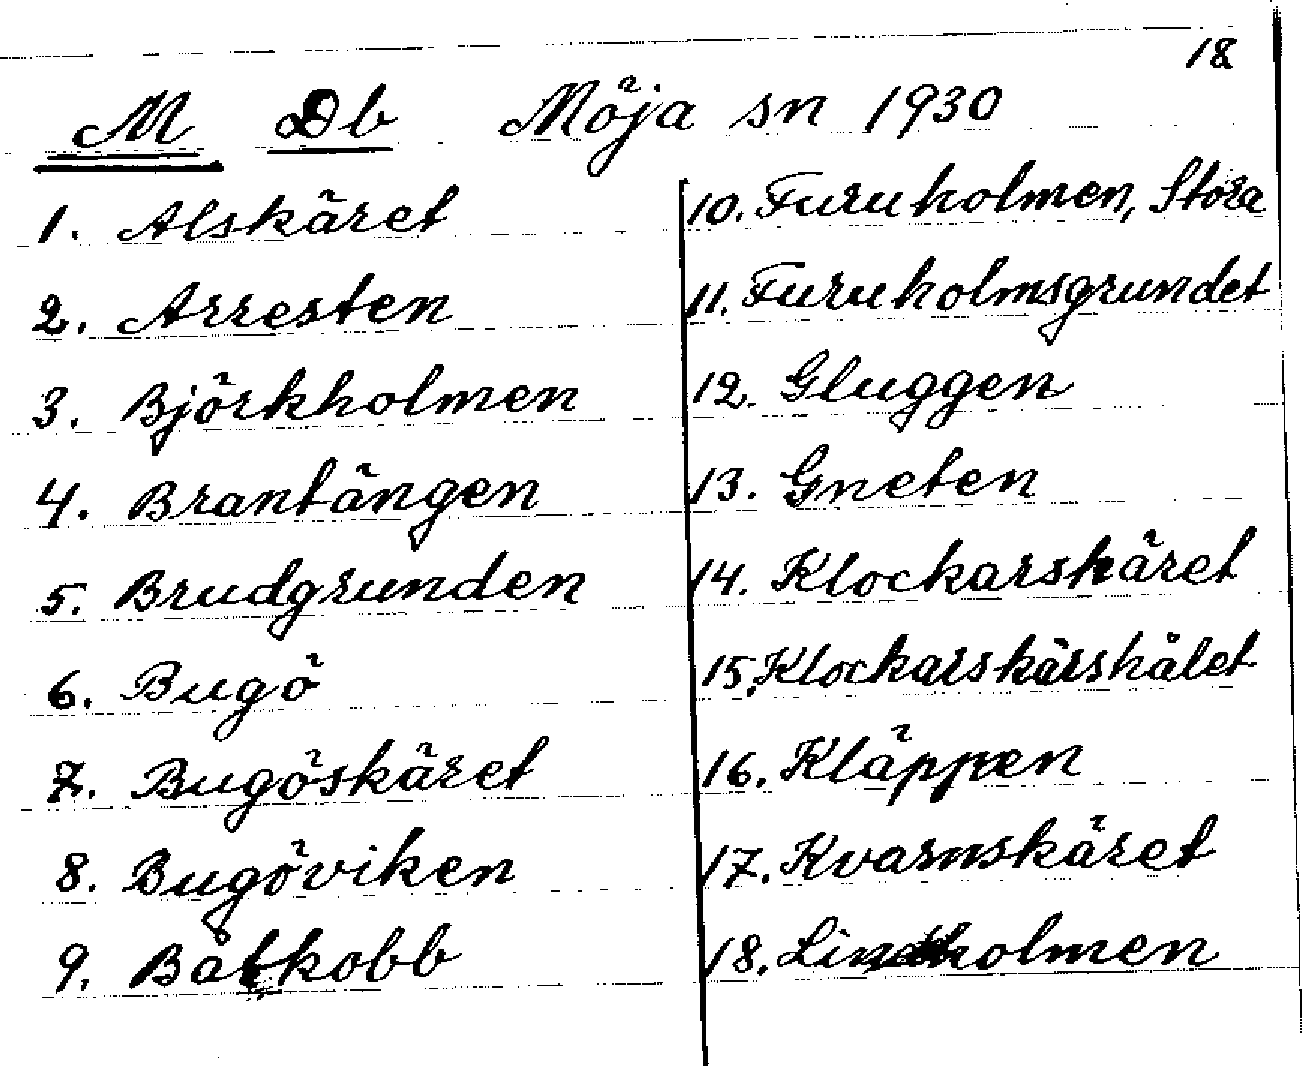 18
M Db Möja sn 1930
1. Alskäret
2. Arresten
3. Björkholmen
4. Brantängen
5. Brudgrunden
6. Bugö
7. Bugöskäret
8. Bugöviken
9. Båtkobb
10. Furuholmen, Stora
11. Furuholmsgrundet
12. Gluggen
13. Gneten
14. Klockarskäret
15. Klockarskärshålet
16. Kläppen
17. Kvarnskäret
18. Lindholmen